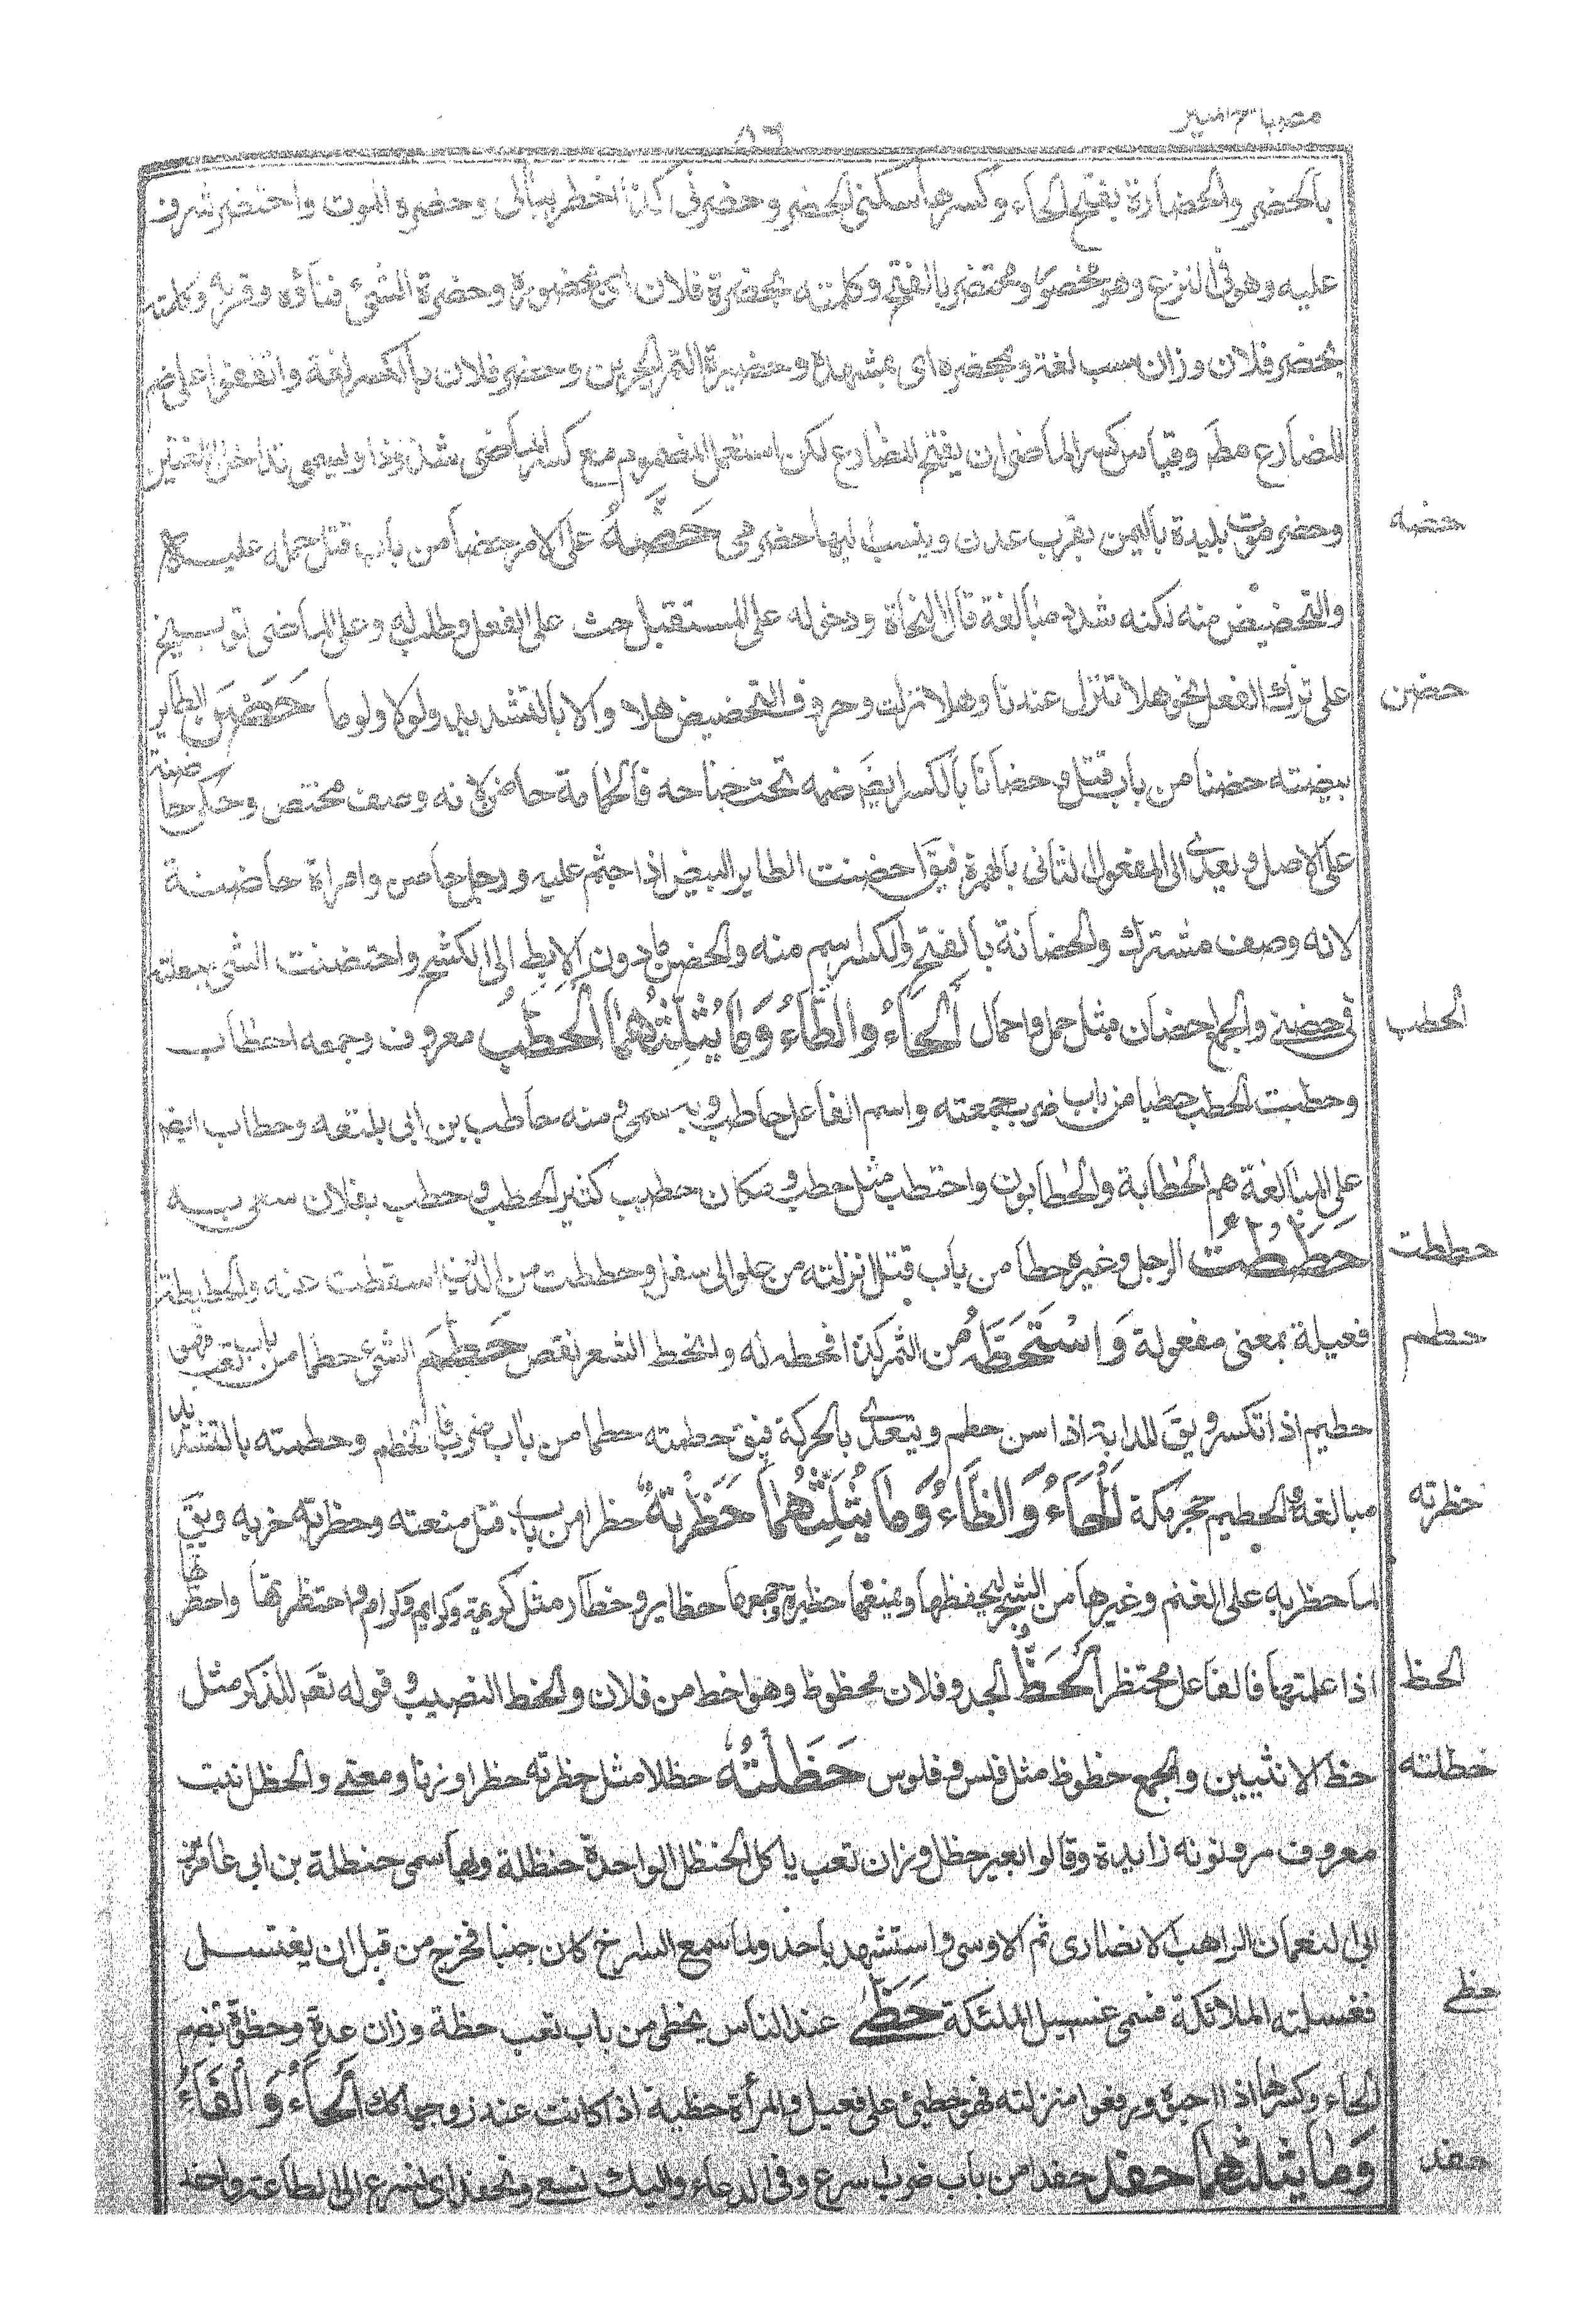 مصباح المنير
٨٦
بالحضر والحضارة بفتح الحاء وكسرها سكنى الحضر وحضرنى كذا اخطر ببالى وحضره الموت واحتضر شرف
عليه وهو فى النزع وهو محضور ومحتضر بالفتح وكلمته بحضرة فلان اى بحضوره وحضرة الشئ فناؤه وقربه وكلمته
بحضر فلان وزان سبب لغة وبمحضره اى بمشهده وحضيرة التمر الجرين وحضر فلان بالكسر لغة واتفقوا على ضم
المضارع مطه وقياس كسر الماضى ان يفتح المضارع لكن استعمل المضموم مع كسر الماضى شذوذا ويسمى تداخل اللغتين
وحضرموت بليدة باليمن بقرب عدن وينسب اليها حضرمى حَضَّهُ على الامر حضا من باب قتل حمله عليه
حضه
والتحضيض منه لكنه شدد مبالغة قال النحاة ودخوله على المستقبل حث على الفعل وطلب له وعلى الماضى توبيخ
على ترك الفعل نحو هلا تنزل عندنا وهلا نزلت وحروف التحضيض هلا والا بالتشديد ولولا ولوما حَضَنَ الطاير
حضن
بيضته حضنا من باب قتل وحضانا بالكسر ايضم ضمه تحت جناحه فالحمامة حاضن لانه وصف مختص وحكى حاضنة
على الاصل ويعدى الى المفعول الثانى بالهمزة فيق احضنت الطاير البيض اذا جثم عليه ورجل حاضن وامراة حاضنة
لانه وصف مشترك والحضانة بالفتح والكسر اسم منه والحضن ما دون الابط الى الكشح واحتضنت الشى جعلته
فى حضنى والجمع احضان مثل حمل واحمال اَلْحَاءُ وَالطَّاءُ وَمَا يُثَلِّثُهُمَا الْحَطَبُ معروف وجمعه احطاب
الحطب
وحطبت الحطب حطبا من باب ضرب جمعته واسم الفاعل حاطب وبه سمى ومنه حاطب بن ابى بلتعه وحطاب ايضم
على المبالغة هم الحطابة والحطابون واحتطب مثل حطب ومكان حطيب كثير الحطب وحطب بفلان سعى به
حَطَطْتُ الرجل وغيره حطا من باب قتل انزلته من علو الى سفل وحططت من الدين اسقطت عنه والحطيطة
حططت
فعيلة بمعنى مفعولة وَاسْتَحَطَّهُ من الثمن كذا فحطه له وانحط السعر نقص حَطِمَ الشئ حطما من باب تعب فهو
حطم
حطيم اذا تكسر ويق للدابة اذا اسن حطم ويتعدى بالحركة فيق حطمته حطما من باب ضرب فانحطم وحطمته بالتشديد
مبالغة والحطيم حجر مكة اَلْحَاءُ وَالظَّاءُ وَمَا يُثَلِّثُهُمَا حَظَرْتُهُ حظرا من باب قتل منعته وحظرته حزته ويق
حظرته
لما حظر به على الغنم وغيرها من الشجر ليحفظها ويمنعها حظيرة وجمعها حظاير وحظار مثل كريمة وكرايم وكرام واحتظرتها واحظرتها
اذا عملتها فالفاعل محتظر اَلْحَظُّ الجد وفلان محظوظ وهو احظ من فلان والحظ النصيب وقوله تعم للذكر مثل
الحظ
حظ الانثيين والجمع حظوظ مثل فلس وفلوس حَظَلْتُهُ حظلا مثل حظرته حظرا وزنا ومعنى والحنظل نبت
حظلته
معروف مر ونونه زايدة وقالوا بعير حظل وزان تعب ياكل الحنظل الواحدة حنظلة وبها سمى حنظلة بن ابى عامر بن
ابى النعمان الراهب الانصارى ثم الاوسى واستشهد باحد ولما سمع الصارخ كان جنبا فخرج من قبل ان يغتسل
فغسلته الملائكة فسمى غسيل الملئكة حَظِىَ عند الناس يحظى من باب تعب حظة وزان عدة وحظوة بضم
حظى
الحاء وكسرها اذا احبوه ورفعوا منزلته فهو حظى على فعيل والمرأة حظية اذا كانت عند زوجها كك اَلْحَاءُ وَالْفَاءُ
وَمَا يثلثهما حفد حفدا من باب ضرب اسرع وفى الدعاء واليك نسعى ونحفد اى نسرع الى الطاعة واحفد
حفد